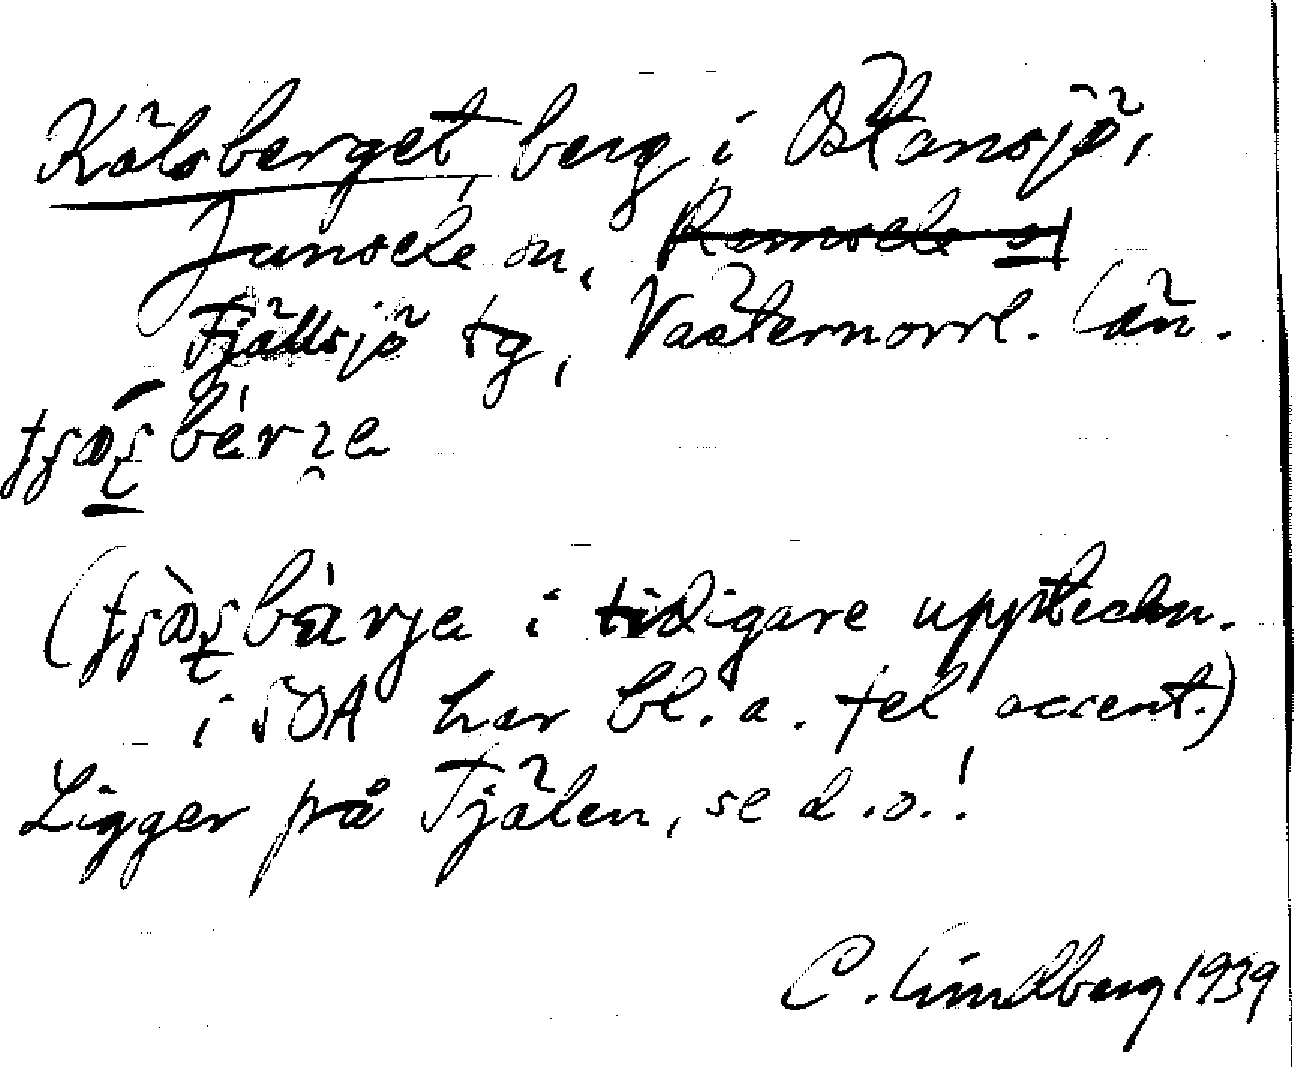 Kälsberget, berg i Östansjö,
Junsele sn, Ramsele s
Fjällsjö tg, Västernorrl. län.
bérʒe
i tidigare uppteckn.
i SOA har bl. a. fel accent.)
Ligger på Tjälen, se d.o.!
C. Lindberg 1939